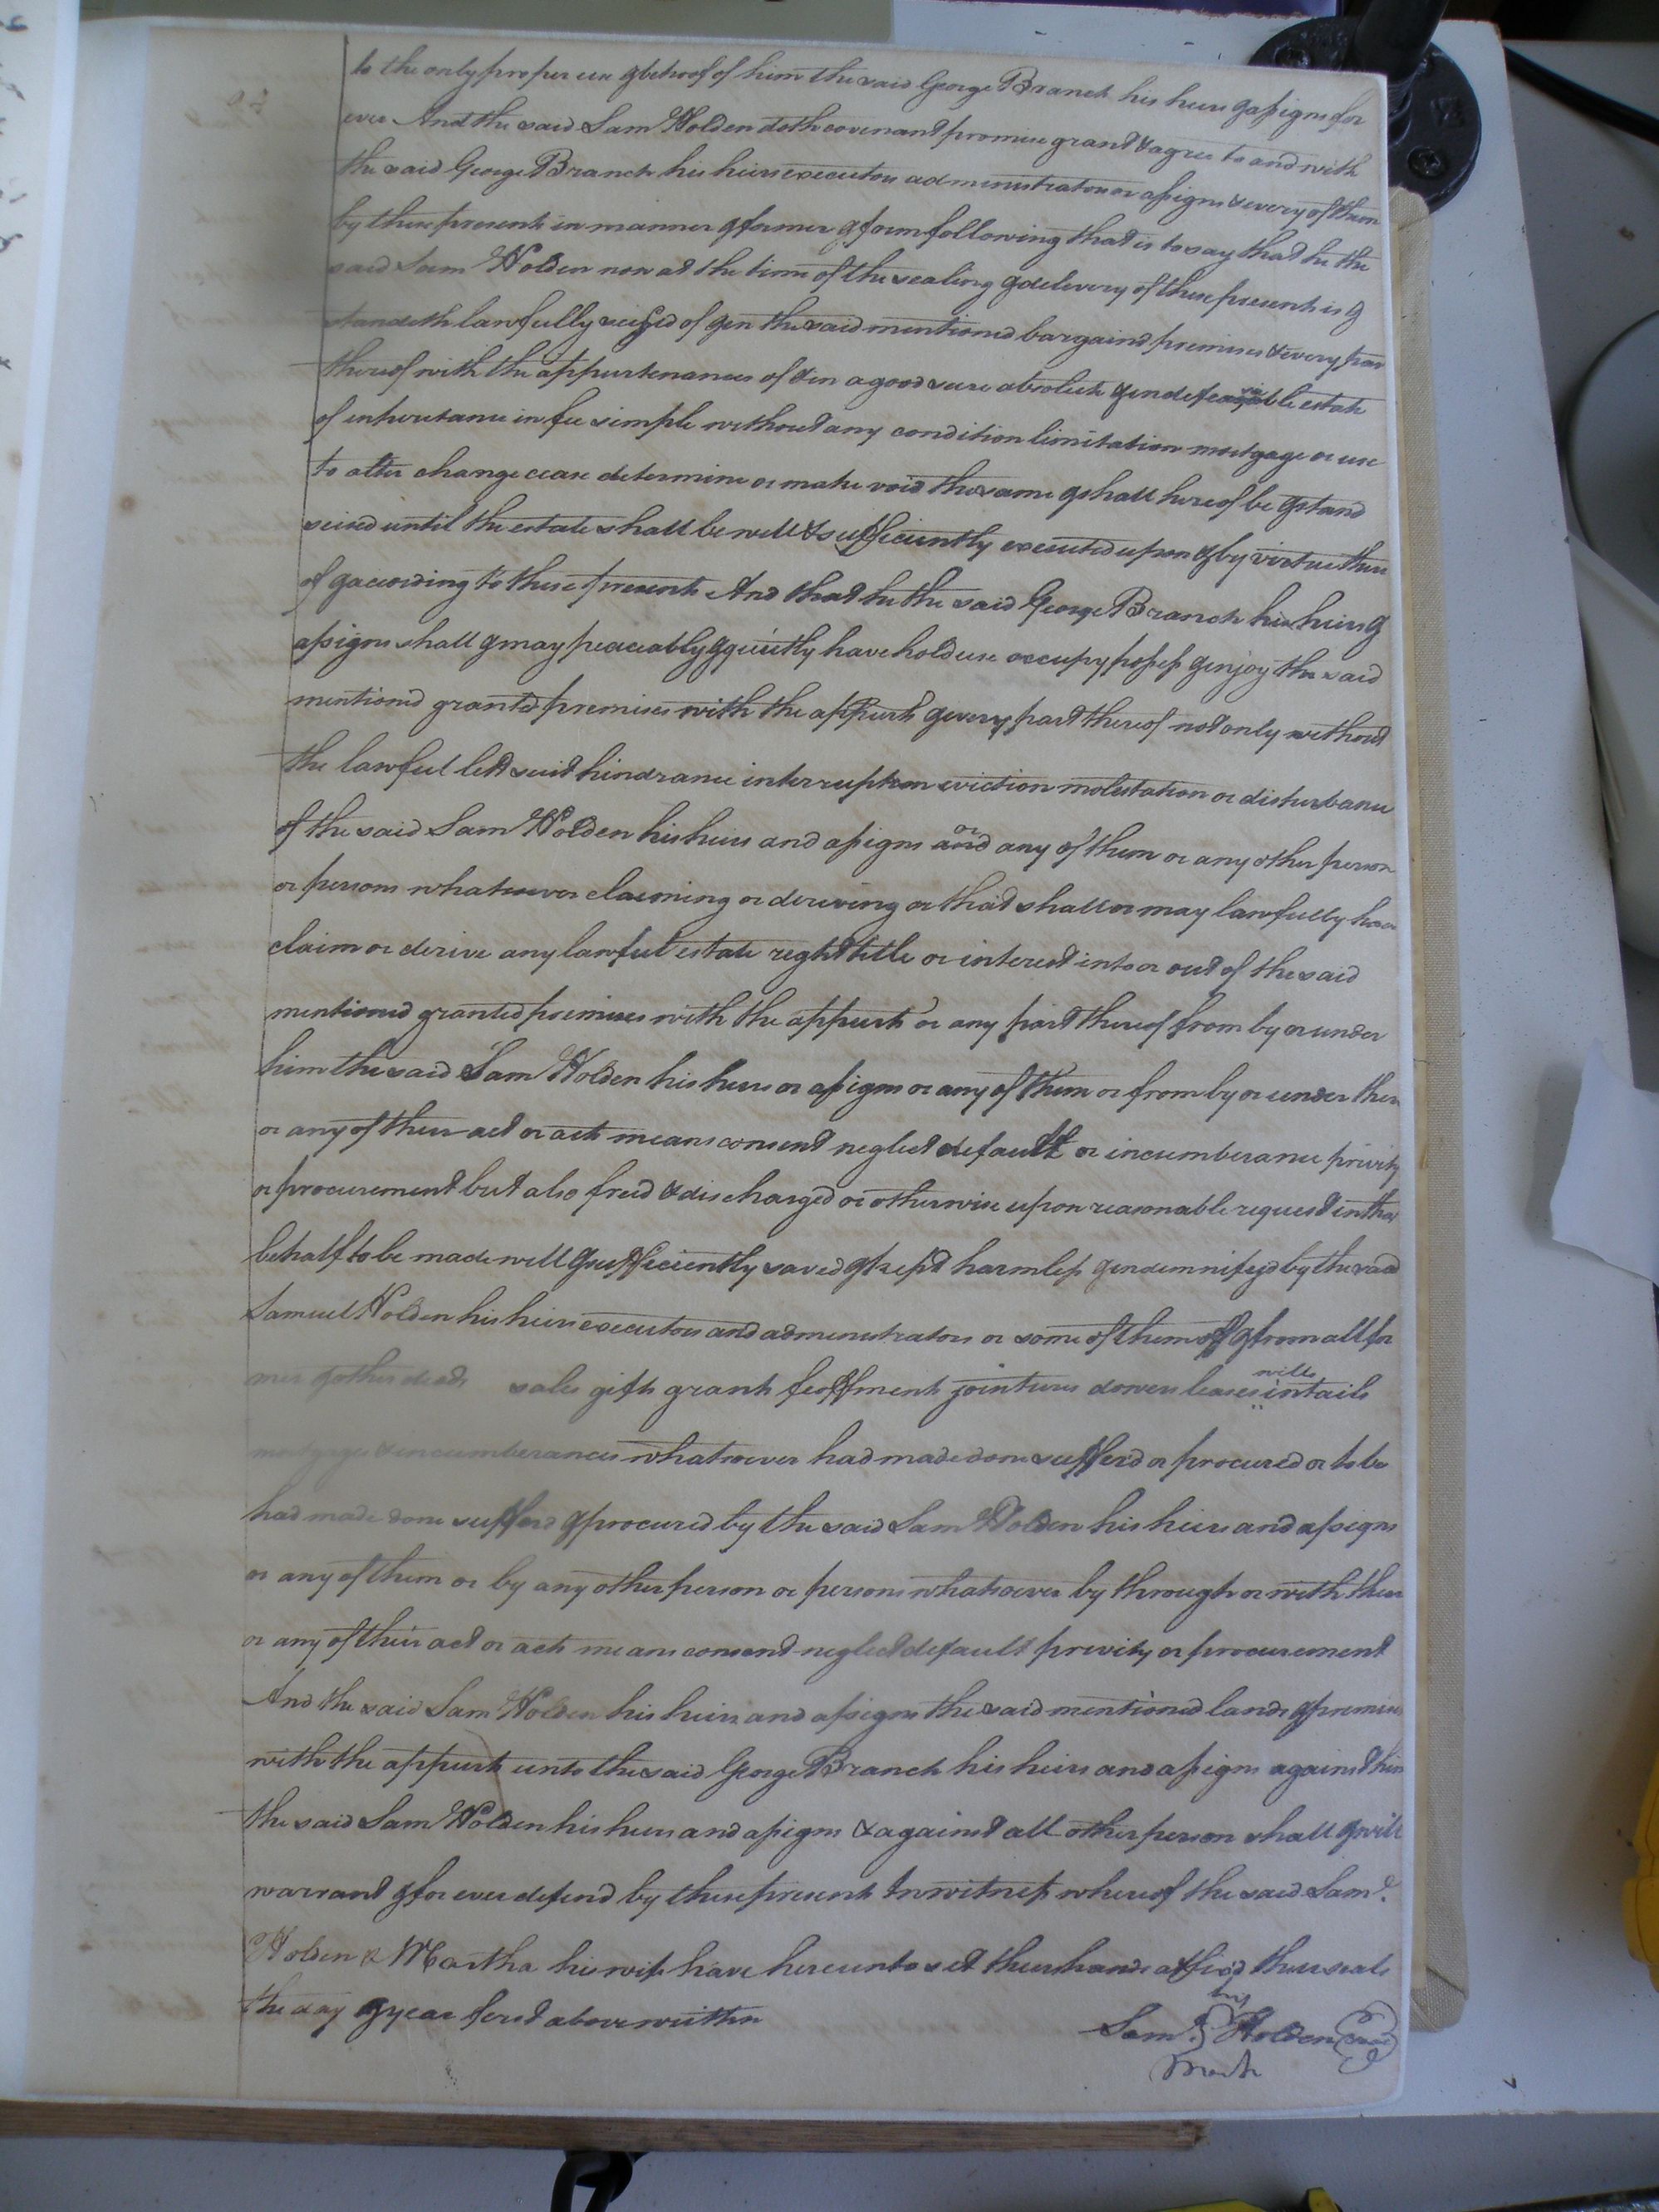 to the only proper use & behoof of him the said George Branch his heirs & assigns for
ever And the said Sam Holden doth covenant promise grant & agree to and with
the said George Branch his heirs executors administrators or assigns & every of them
by these presents in manner & former & form following that is to say that he the
said Sam Holden now at the time of the sealing & delevery of these presents is &
standeth lawfully seized of & in the said mentioned bargaind premises & every part
thereof with the appurtenances of & in a good sure absolute & indefeasible estate
of enheritance in fee simple without any condition limitation mortgage or use
to alter change cease determine or make void the same & shall hereof be & stand
seised until the estate shall be well & sufficiently executed upon & by virtue there
of & according to these presents And that he the said George Branch his heirs &
assigns shall & may peaceably & quietly have hold use occupy possess & enjoy the said
mentioned granted premises with the appurts & every part thereof not only without
the lawful lett suit hindrance interruption eviction molestation or disturbance
of the said Sam Holden his heirs and assigns and or any of them or any other person
or persons whatsoever claiming or deriving or that shall or may lawfully have
claim or derive any lawful estate right title or interest into or out of the said
mentioned granted premises with the appurts or any part thereof from by or under
him the said Sam Holden his heirs or assigns or any of them or from by or under their
or any of their act or acts means consent neglect default or incumberance privity
or procurement but also freed & discharged or otherwise upon reasonable request in that
behalf to be made well & sufficiently saved & kept harmless & indemnifyd by the said
Samuel Holden his heirs executors and administrators or some of them off & from all for
mer & other deeds sales gifts grants feoffments jointures dowers leases wills intails
mortgages & incumberances whatsoever had made done sufferd or procured or to be
had made done sufferd & procured by the said Sam Holden his heirs and assigns
or any of them or by any other person or persons whatsoever by through or with their
or any of their act or acts means consent neglect default privity or procurement
And the said Sam Holden his heirs and assigns the said mentioned lands & premises
with the appurts unto the said George Branch his heirs and assigns against him
the said Sam Holden his heirs and assigns & against all other person shall & will
warrant & for ever defend by these presents In witness whereof the said Saml.
Holden & Martha his wife have hereunto set their hands affixd their seals
the day & year first above written
his
Saml. Holden seal
Mark